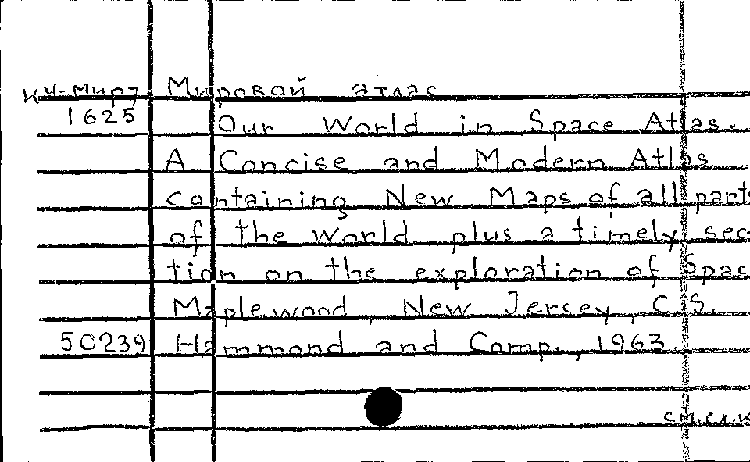 КЧ-Мир7 Мировой атлас
1625 Our World in Space Atlas.
A Concise and Modern Atlas
containing New Maps of all parts
of the World plus a timely sec-
tion on the exploration of Spac
Maplewood, New Jersey, C.S.
50239 Hammond and Comp., 1963
см.сл.к